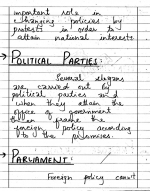 important role in
changing policies by
protests in order to
attain national interests.
→ POLITICAL PARTIES:
Several slogans
are carried out by
political parties and
when they attain the
of government
frame the
foreign policy according
to the promises.
→ PARLIAMENT:
Foreign policy can't